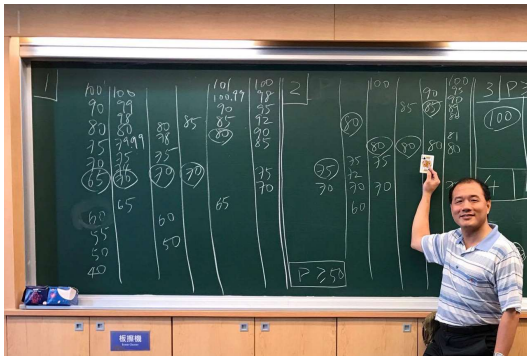 1
100
90
80
75
70
65
60
55
50
40
100
99
98
80
79.99
75
65
80
78
75
70
60
50
85
70
101
100.99
90
85
80
65
100
98
95
92
90
85
75
70
2
P
75
70
80
75
72
70
60
100
80
75
70
85
80
90
85
80
100
95
90
89
81
80
3
P≥
100
4
P≥50
板擦機